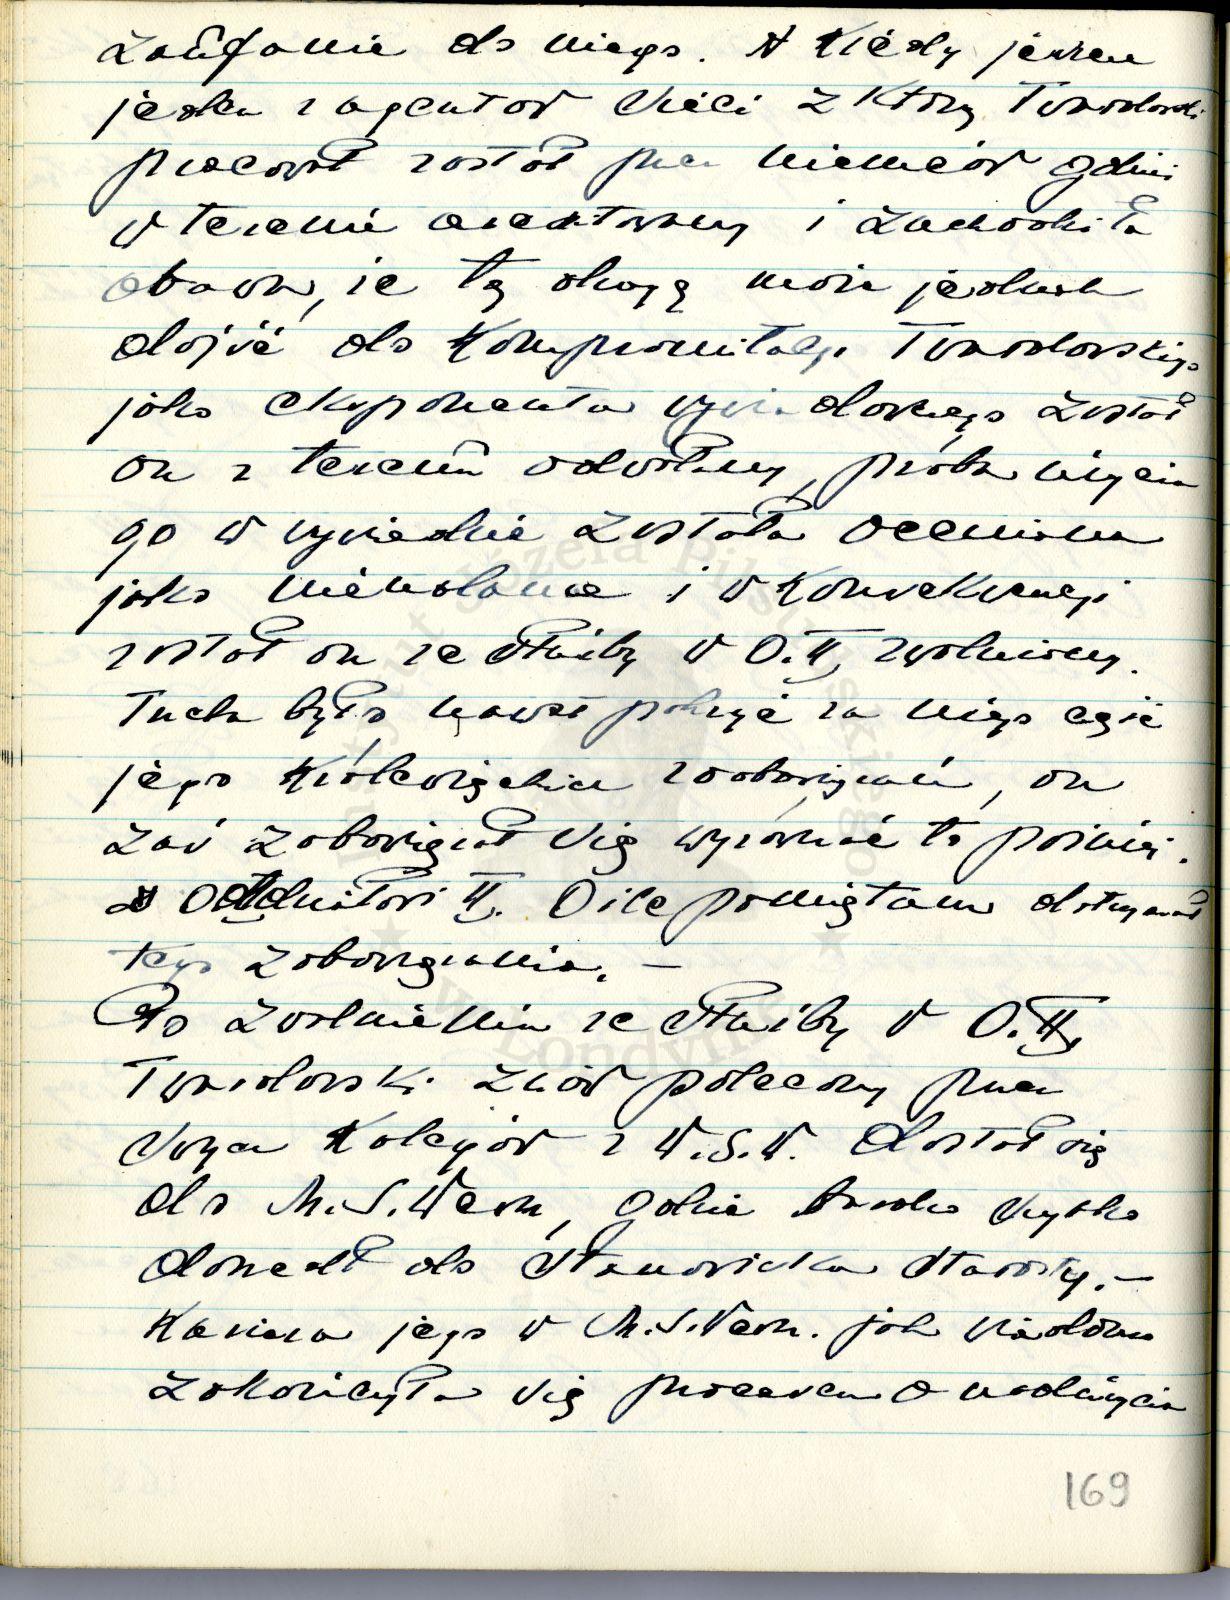 zaufanie do niego. A kiedy jeszcze
jeden z agentów sieci z którą Twardowski
pracował został przez niemców gdzieś
w terenie aresztowany i zachodziła
obawa, że tą drogą może jednak
dojść do kompromitacji Twardowskiego
jako eksponenta wywiadowczego został
on z terenu odwołany, próba użycia
go w wywiadzie została oceniona
jako nieudana i w konsekwencji
został on ze służby w O.II, zwolniony.
Trzeba było nawet pokryć za niego część
jego królewieckich zobowiązań, on
zaś zobowiązał się wyrównać to później.
z Oddziałowi II. O ile pamiętam dotrzymał
tego zobowiązania. —
Po zwolnieniu ze służby w O.II,
Twardowski znów polecony przez
swych kolegów z W.S.W. dostał się
do M.S.Wewn, gdzie bardzo szybko
doszedł do stanowiska starosty. —
Kariera jego w M.S.Wewn. jak wiadomo
zakończyła się procesem o nadużycia
169
Instytut Józefa Piłsudskiego
w Londynie